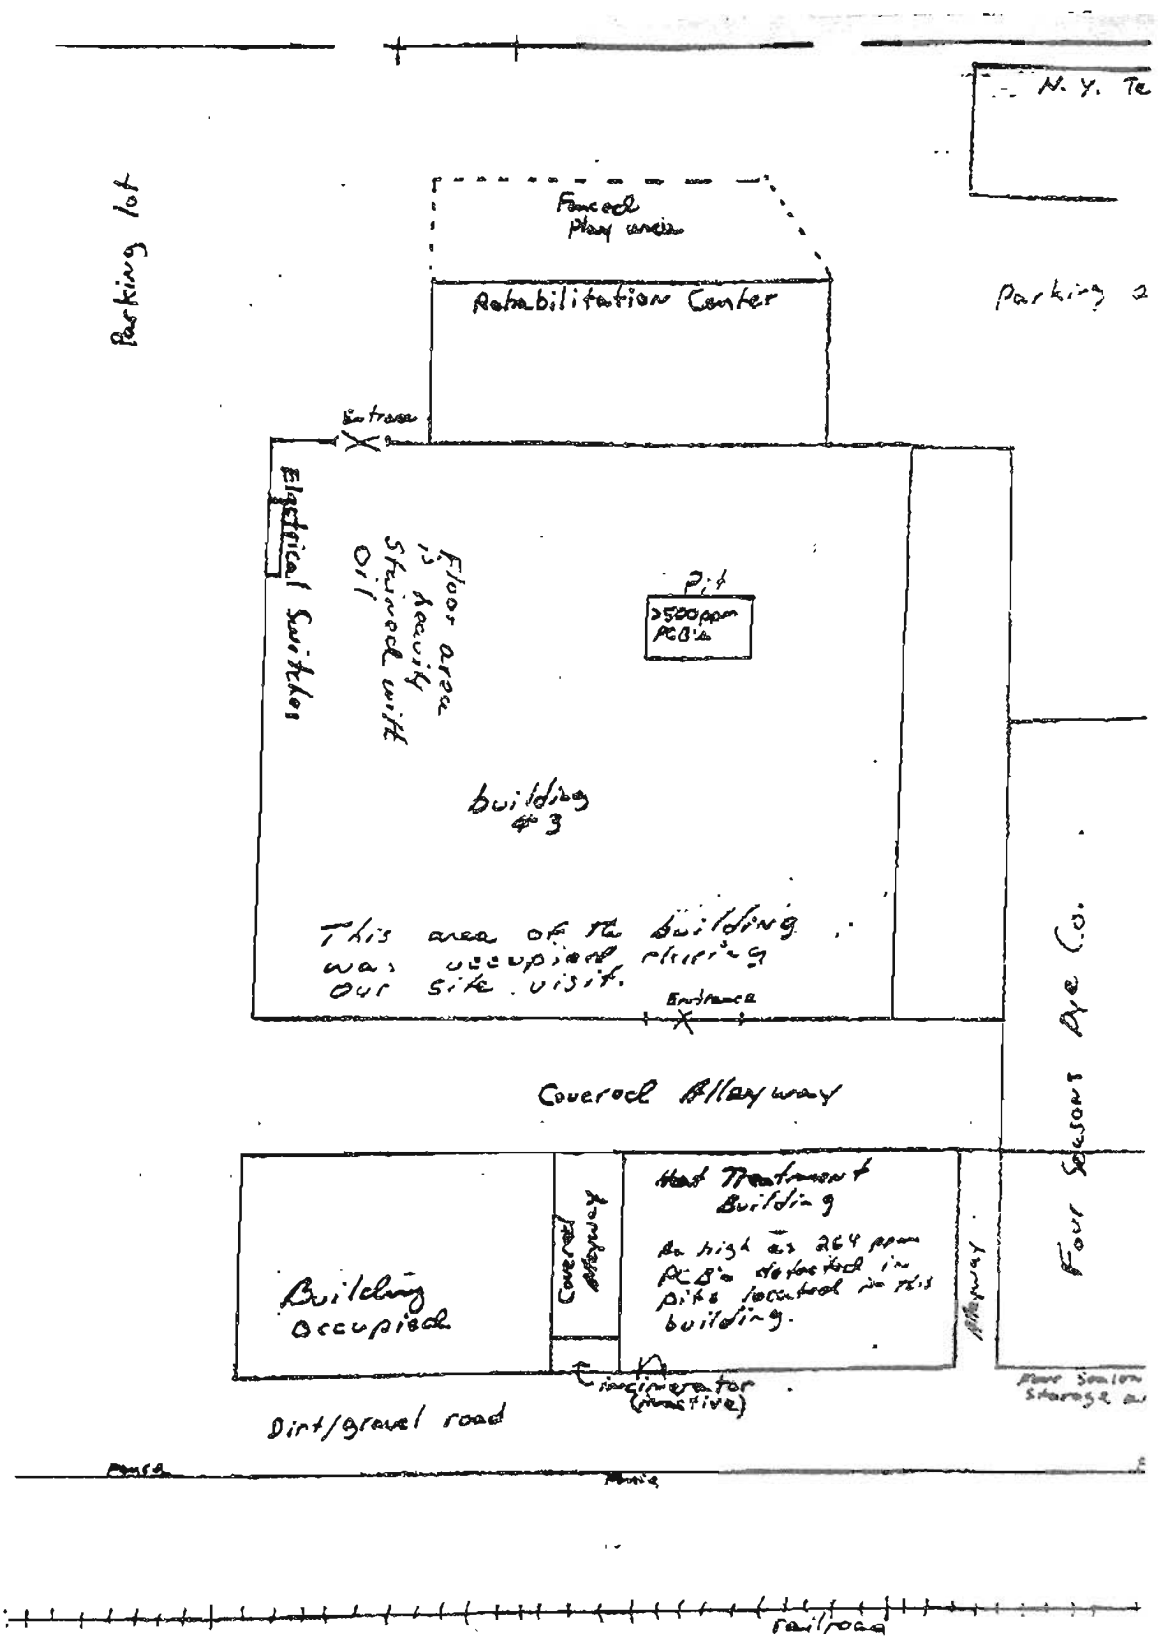 N. Y. Te
Parking lot
Fenced
Play area
Rehabilitation Center
Parking a
Entrance
Electrical Switches
Floor area
is heavily
stained with
oil
Pit
>500ppm
PCB's
building
# 3
This area of the building
was occupied during
our site visit.
Entrance
Four Seasons Dye Co.
Covered Alleyway
Heat Treatment
Building
As high as 264 ppm
PCB's detected in
pits located in this
building.
Covered
Alleyway
Alleyway
Building
Occupied
incinerator
(inactive)
Four Season
Storage a
Dirt/gravel road
Fence
Fence
railroad